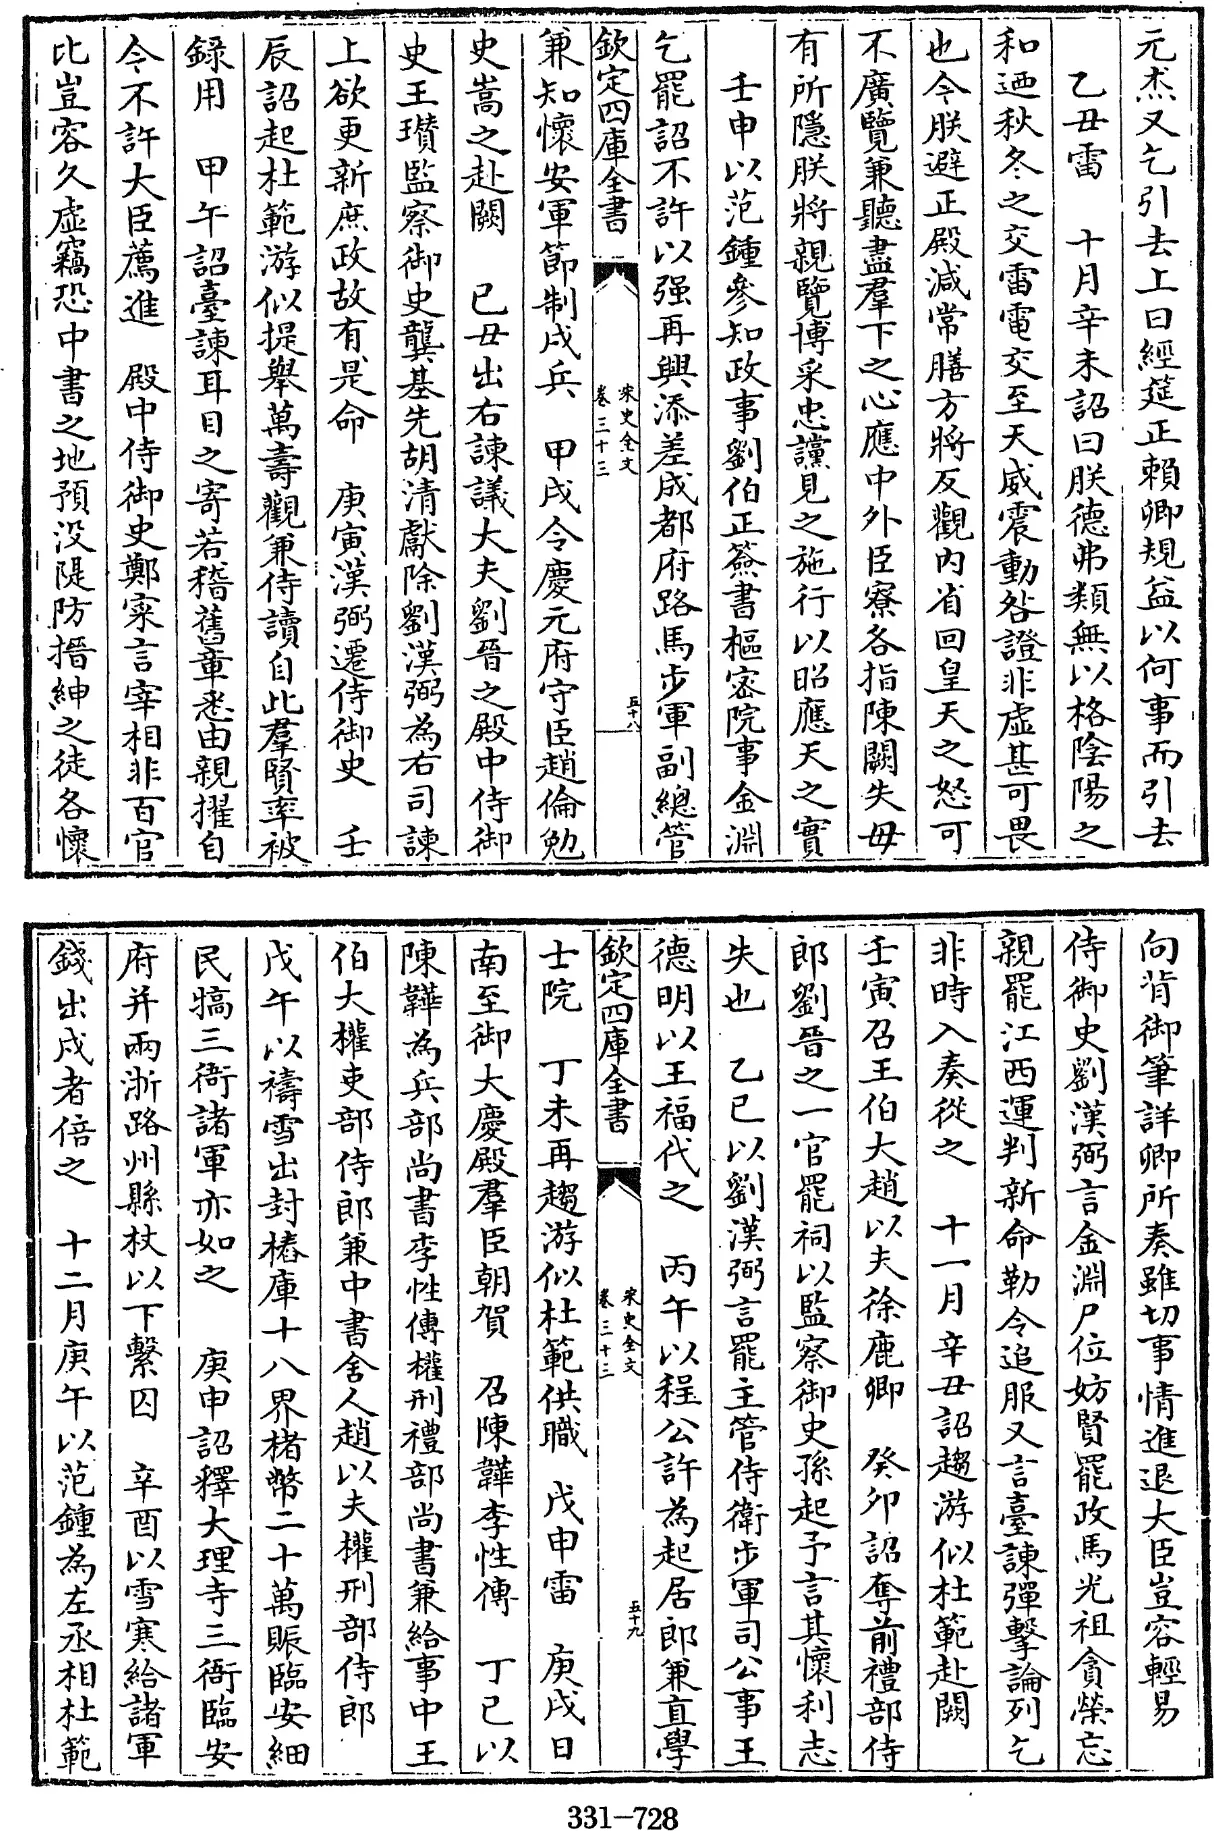 元杰又乞引去上曰經筵正賴卿規益以何事而引去
乙丑雷　十月辛未詔曰朕德弗類無以格陰陽之
和迺秋冬之交雷電交至天威震動咎證非虛甚可畏
也今朕避正殿減常膳方將反觀内省回皇天之怒可
不廣覽兼聽盡羣下之心應中外臣寮各指陳闕失毋
有所隱朕將親覽博采忠讜見之施行以昭應天之實
壬申以范鍾參知政事劉伯正簽書樞密院事金淵
乞罷詔不許以强再興添差成都府路馬步軍副總管
欽定四庫全書
宋史全文
卷三十三
五十八
兼知懷安軍節制戍兵　甲戌令慶元府守臣趙倫勉
史嵩之赴闕　己丑出右諫議大夫劉晉之殿中侍御
史王瓚監察御史龔基先胡清獻除劉漢弼為右司諫
上欲更新庶政故有是命　庚寅漢弼遷侍御史　壬
辰詔起杜範游似提舉萬壽觀兼侍讀自此羣賢率被
錄用　甲午詔臺諫耳目之寄若稽舊章悉由親擢自
今不許大臣薦進　殿中侍御史鄭寀言宰相非百官
比豈容久虛竊恐中書之地預没隄防搢紳之徒各懷
向背御筆詳卿所奏雖切事情進退大臣豈容輕易
侍御史劉漢弼言金淵尸位妨賢罷政馬光祖貪榮忘
親罷江西運判新命勒令追服又言臺諫彈擊論列乞
非時入奏從之　十一月辛丑詔趨游似杜範赴闕
壬寅召王伯大趙以夫徐鹿卿　癸卯詔奪前禮部侍
郎劉晉之一官罷祠以監察御史孫起予言其懷利志
失也　乙巳以劉漢弼言罷主管侍衛步軍司公事王
德明以王福代之　丙午以程公許為起居郎兼直學
欽定四庫全書
宋史全文
卷三十三
五十九
士院　丁未再趨游似杜範供職　戊申雷　庚戌日
南至御大慶殿羣臣朝賀　召陳韡李性傳　丁巳以
陳韡為兵部尚書李性傳權刑禮部尚書兼給事中王
伯大權吏部侍郎兼中書舍人趙以夫權刑部侍郎
戊午以禱雪出封樁庫十八界楮幣二十萬賑臨安細
民犒三衙諸軍亦如之　庚申詔釋大理寺三衙臨安
府并兩浙路州縣杖以下繫囚　辛酉以雪寒給諸軍
錢出戍者倍之　十二月庚午以范鍾為左丞相杜範
331-728